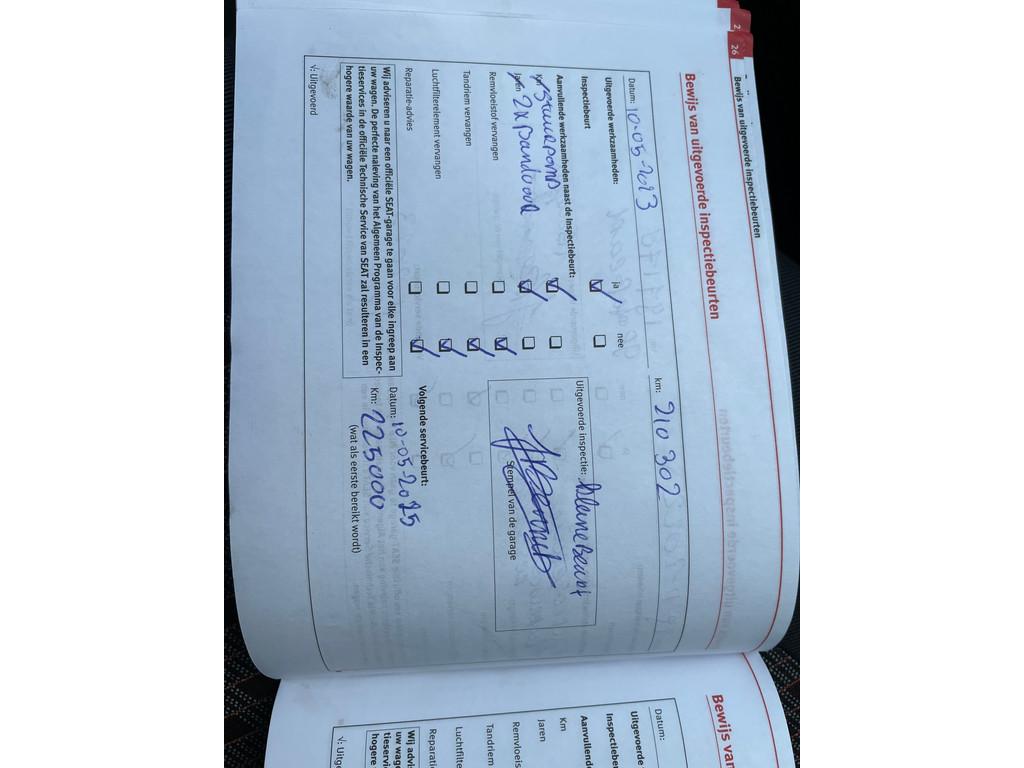 26
Bewijs van uitgevoerde inspectiebeurten
Bewijs van uitgevoerde inspectiebeurten
Datum: 10-05-2023
km: 210 302
Uitgevoerde werkzaamheden:
ja
nee
Inspectiebeurt
Aanvullende werkzaamheden naast de Inspectiebeurt:
Km stuurpomp
Jaren 2x band voor
Remvloeistof vervangen
Tandriem vervangen
Luchtfilterelement vervangen
Reparatie-advies
Uitgevoerde inspectie: kleine Beurt
Stempel van de garage
Volgende servicebeurt:
Datum: 10-05-2025
Km: 225000
(wat als eerste bereikt wordt)
Wij adviseren u naar een officiële SEAT-garage te gaan voor elke ingreep aan
uw wagen. De perfecte naleving van het Algemeen Programma van de Inspec-
tieservices in de officiële Technische Service van SEAT zal resulteren in een
hogere waarde van uw wagen.
√: Uitgevoerd
Bewijs van
Datum:
Uitgevoerde
Inspectiebeurt
Aanvullende
Km
Jaren
Remvloeis
Tandriem
Luchtfilte
Reparatie
Wij advis
uw wage
tieservic
hogere
√: Uitge